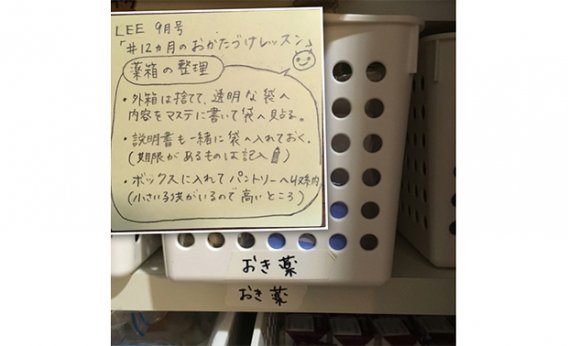 LEE 9月号
「#12ヵ月のおかたづけレッスン」
薬箱の整理
・外箱は捨てて、透明な袋へ
内容をマステに書いて袋へ貼る。
・説明書も一緒に袋へ入れておく。
(期限があるものは記入)
・ボックスに入れてパントリーへ収納
(小さい子供がいるので高いところ)
おき薬
おき薬